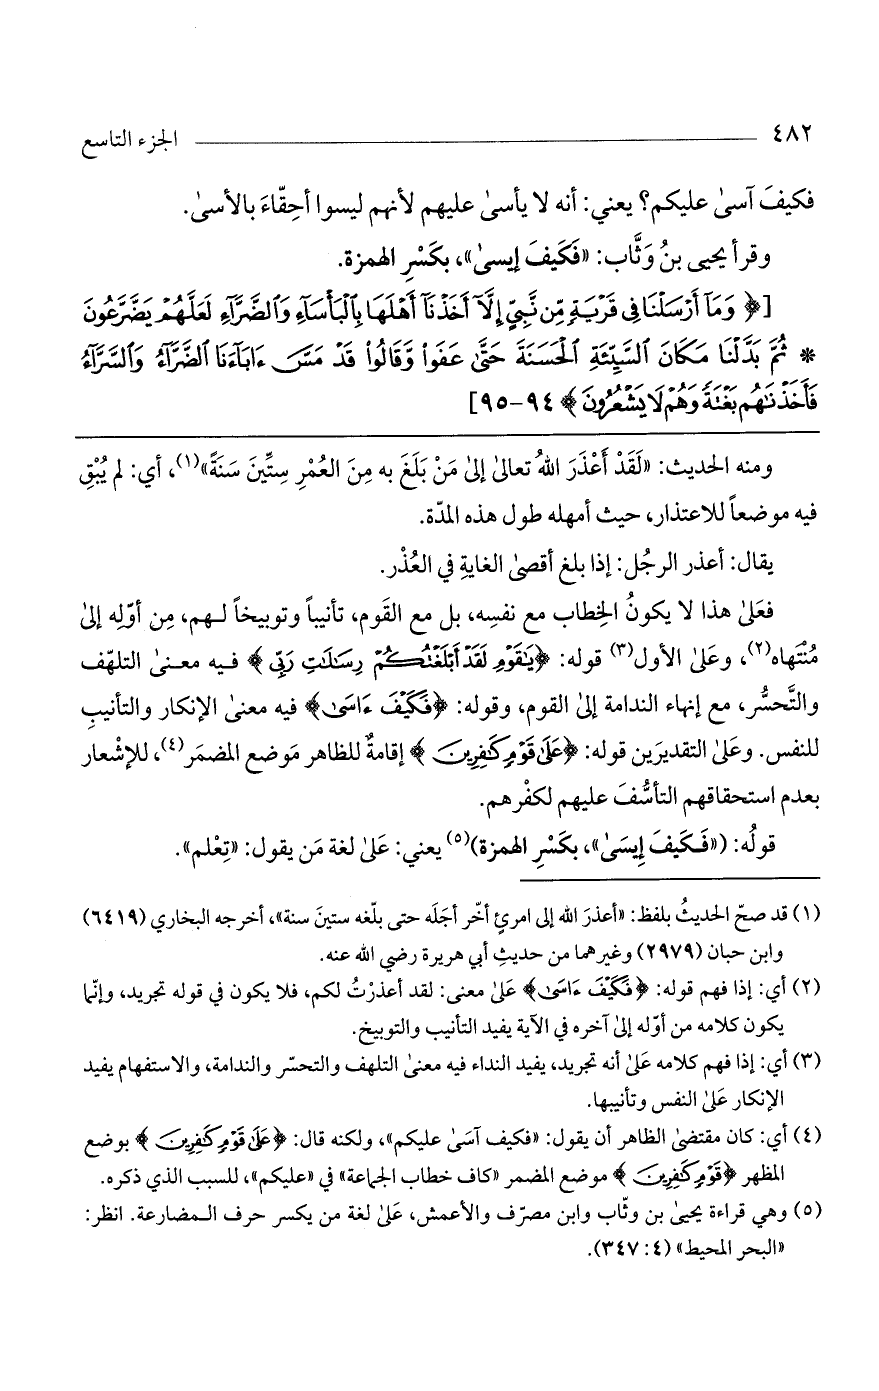 ٤٨٢ الجزء التاسع
فكيفَ آسىٰ عليكم؟ يعني: أنه لا يأسىٰ عليهم لأنهم ليسوا أحِقّاءَ بالأسىٰ.
وقرأ يحيى بنُ وَثَّاب: «فَكَيفَ إيسىٰ»، بكَسْرِ الهمزة.
[﴿ وَمَآ أَرْسَلْنَا فِى قَرْيَةٍ مِّن نَّبِيٍّ إِلَّآ أَخَذْنَآ أَهْلَهَا بِٱلْبَأْسَآءِ وَٱلضَّرَّآءِ لَعَلَّهُمْ يَضَّرَّعُونَ
* ثُمَّ بَدَّلْنَا مَكَانَ ٱلسَّيِّئَةِ ٱلْحَسَنَةَ حَتَّىٰ عَفَوا۟ وَّقَالُوا۟ قَدْ مَسَّ ءَابَآءَنَا ٱلضَّرَّآءُ وَٱلسَّرَّآءُ
فَأَخَذْنَٰهُم بَغْتَةً وَهُمْ لَا يَشْعُرُونَ ﴾ ٩٤-٩٥]
ومنه الحديث: «لَقَدْ أَعْذَرَ اللهُ تعالىٰ إلىٰ مَنْ بَلَغَ به مِنَ العُمْرِ سِتِّينَ سَنَةً»(١)، أي: لم يُبْقِ
فيه موضعاً للاعتذار، حيث أمهله طول هذه المدّة.
يقال: أعذر الرجُل: إذا بلغ أقصىٰ الغايةِ في العُذْر.
فعَلىٰ هذا لا يكونُ الخِطاب مع نفسِه، بل مع القَوم، تأنيباً وتوبيخاً لـهم، مِن أوّلِه إلىٰ
مُنْتَهاه(٢)، وعَلىٰ الأول(٣) قوله: ﴿يَٰقَوْمِ لَقَدْ أَبْلَغْتُكُمْ رِسَٰلَٰتِ رَبِّى ﴾ فـيه معـنىٰ التلهّف
والتَّحسُّر، مع إنهاء الندامة إلىٰ القوم، وقوله: ﴿فَكَيْفَ ءَاسَىٰ﴾ فيه معنىٰ الإنكار والتأنيبِ
للنفس. وعَلىٰ التقديرَين قوله: ﴿عَلَىٰ قَوْمٍ كَٰفِرِينَ ﴾ إقامةٌ للظاهر مَوضع المضمَر(٤)، للإشْعار
بعدم استحقاقهم التأسُّفَ عليهم لكفْرهم.
قولُه: («فَـكَيفَ إِيسَىٰ»، بكَسْرِ الهمزة)(٥) يعني: عَلىٰ لغة مَن يقول: «تِعْلم».
(١) قد صحّ الحديثُ بلفظ: «أعذرَ الله إلى امرئٍ أخّر أجَلَه حتى بلّغه ستينَ سنة»، أخرجه البخاري (٦٤١٩)
وابن حبان (٢٩٧٩) وغيرهما من حديثِ أبي هريرة رضي الله عنه.
(٢) أي: إذا فهم قوله: ﴿فَكَيْفَ ءَاسَىٰ﴾ عَلىٰ معنى: لقد أعذرْتُ لكم، فلا يكون في قوله تجريد، وإنّما
يكون كلامه من أوّله إلىٰ آخره في الآية يفيد التأنيب والتوبيخ.
(٣) أي: إذا فهم كلامه عَلىٰ أنه تجريد، يفيد النداء فيه معنىٰ التلهف والتحسّر والندامة، والاستفهام يفيد
الإنكار عَلىٰ النفس وتأنيبها.
(٤) أي: كان مقتضىٰ الظاهر أن يقول: «فكيف آسَىٰ عليكم»، ولكنه قال: ﴿عَلَىٰ قَوْمٍ كَٰفِرِينَ ﴾ بوضع
المظهر ﴿قَوْمٍ كَٰفِرِينَ ﴾ موضع المضمر «كاف خطاب الجماعة» في «عليكم»، للسبب الذي ذكره.
(٥) وهي قراءة يحيىٰ بن وثّاب وابن مصرّف والأعمش، عَلىٰ لغة من يكسر حرف الـمضارعة. انظر:
«البحر المحيط» (٤: ٣٤٧).